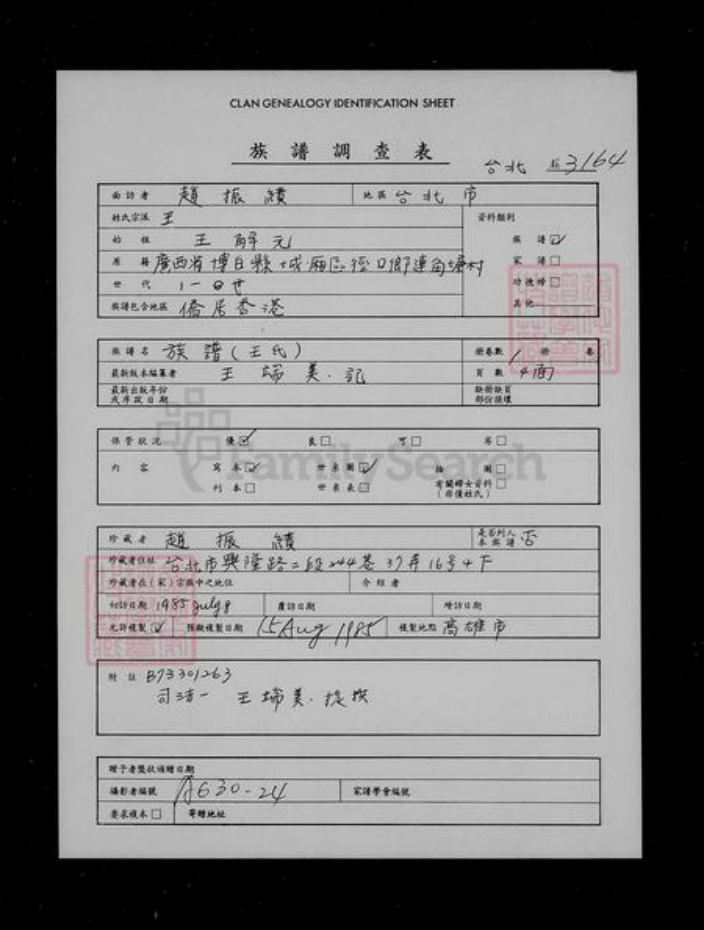 CLAN GENEALOGY IDENTIFICATION SHEET
族譜調查表
台北 3164
面訪者 趙振績 地區 台北市
姓氏宗派 王 資料類別
始祖 王解元 族譜☑
原籍 廣西省博白縣城廂區徑口鄉連角塘村 家譜□
世代 1-
族譜包含地區 僑居香港 其他
族譜名 族譜(王氏) 冊卷數 1 冊 卷
最新版本編纂者 王端美.記 頁數 4面
最新出版年份 缺冊缺頁
或序跋日期 部份損壞
保管狀況 優☑ 良□ 可□ 劣□
內容 寫本☑ 世系圖☑ 圖□
刊本□ 世系表□ 有關婦女資料□
(非僅姓氏)
FamilySearch
珍藏者 趙振績 是否列入 否
本族譜
珍藏者住址 台北市興隆路二段244巷37弄16号4下
珍藏者在(家)宗族中之地位 介紹者
初訪日期 1985 July 8 覆訪日期 續訪日期
允許複製☑ 預擬複製日期 15 Aug 1985 複製地點 高雄市
附註 B73301263
王端美.提供
贈予者獎狀頒贈日期
攝影者編號 A630-24 家譜學會編號
要求複本□ 寄贈地址